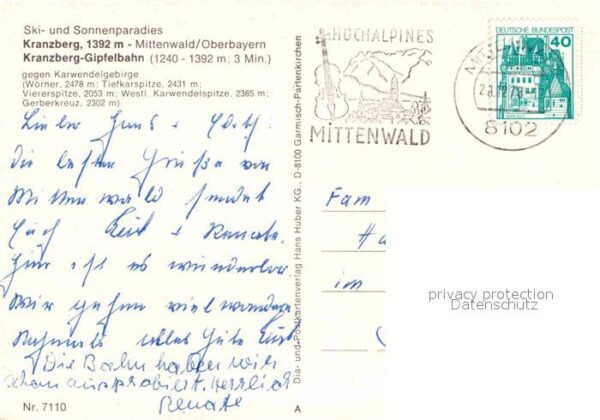 Ski- und Sonnenparadies
Kranzberg, 1392 m - Mittenwald/Oberbayern
Kranzberg-Gipfelbahn (1240 - 1392 m; 3 Min.)
gegen Karwendelgebirge
(Wörner, 2478 m; Tiefkarspitze, 2431 m;
Viererspitze, 2053 m; Westl. Karwendelspitze, 2385 m;
Gerberkreuz, 2302 m)
Lieber Hans + Edith.
die besten Grüße von
Mittenwald sendet
Euch Kurt + Renate.
Hier ist es wunderbar
Wir gehen viel wandern
Nochmals alles Gute Kurt
Die Bahn haben wir
schon ausprobiert. Herzlichst
Renate
Nr. 7110
A
Dia- und Postkartenverlag Hans Huber KG., D-8100 Garmisch-Partenkirchen
HOCHALPINES
MITTENWALD
8102
DEUTSCHE BUNDESPOST
40
Fam
Ha
im
privacy protection
Datenschutz